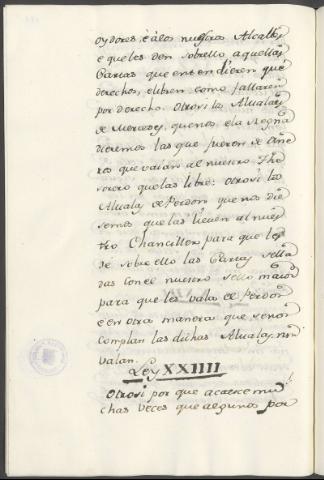 oydores è à los nuestros Alcalles
e que les den sobrello aquellas
Cartas que entendieren que
derechos, e libren como fallaren
por derecho. Otrosi los Alvalaes
de Mercedes, que nos e la Regna
dieremos las que fueren de dine
ros que vaian al nuestro The
sorero que las libre: otrosi los
Alvalas de Perdon que nos die
remos que las lieven al nues
tro Chanciller para que les
dé sobre ello las Cartas sella
das con el nuestro sello maior
para que les vala el Perdon
e en otra manera que se non
complan las dichas Alvalas, nin
valan.
Ley XXIIII
Otrosi por que acaesce mu
chas veces que algunos por